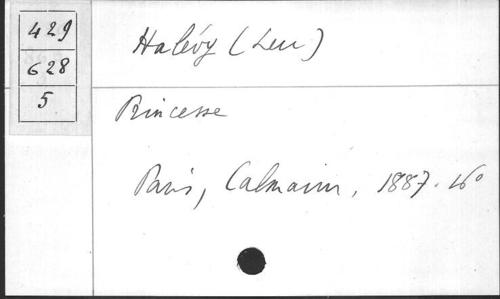 429
628
5
Halévy (Lu)
Princesse
Paris, Calmann, 1887. 16°